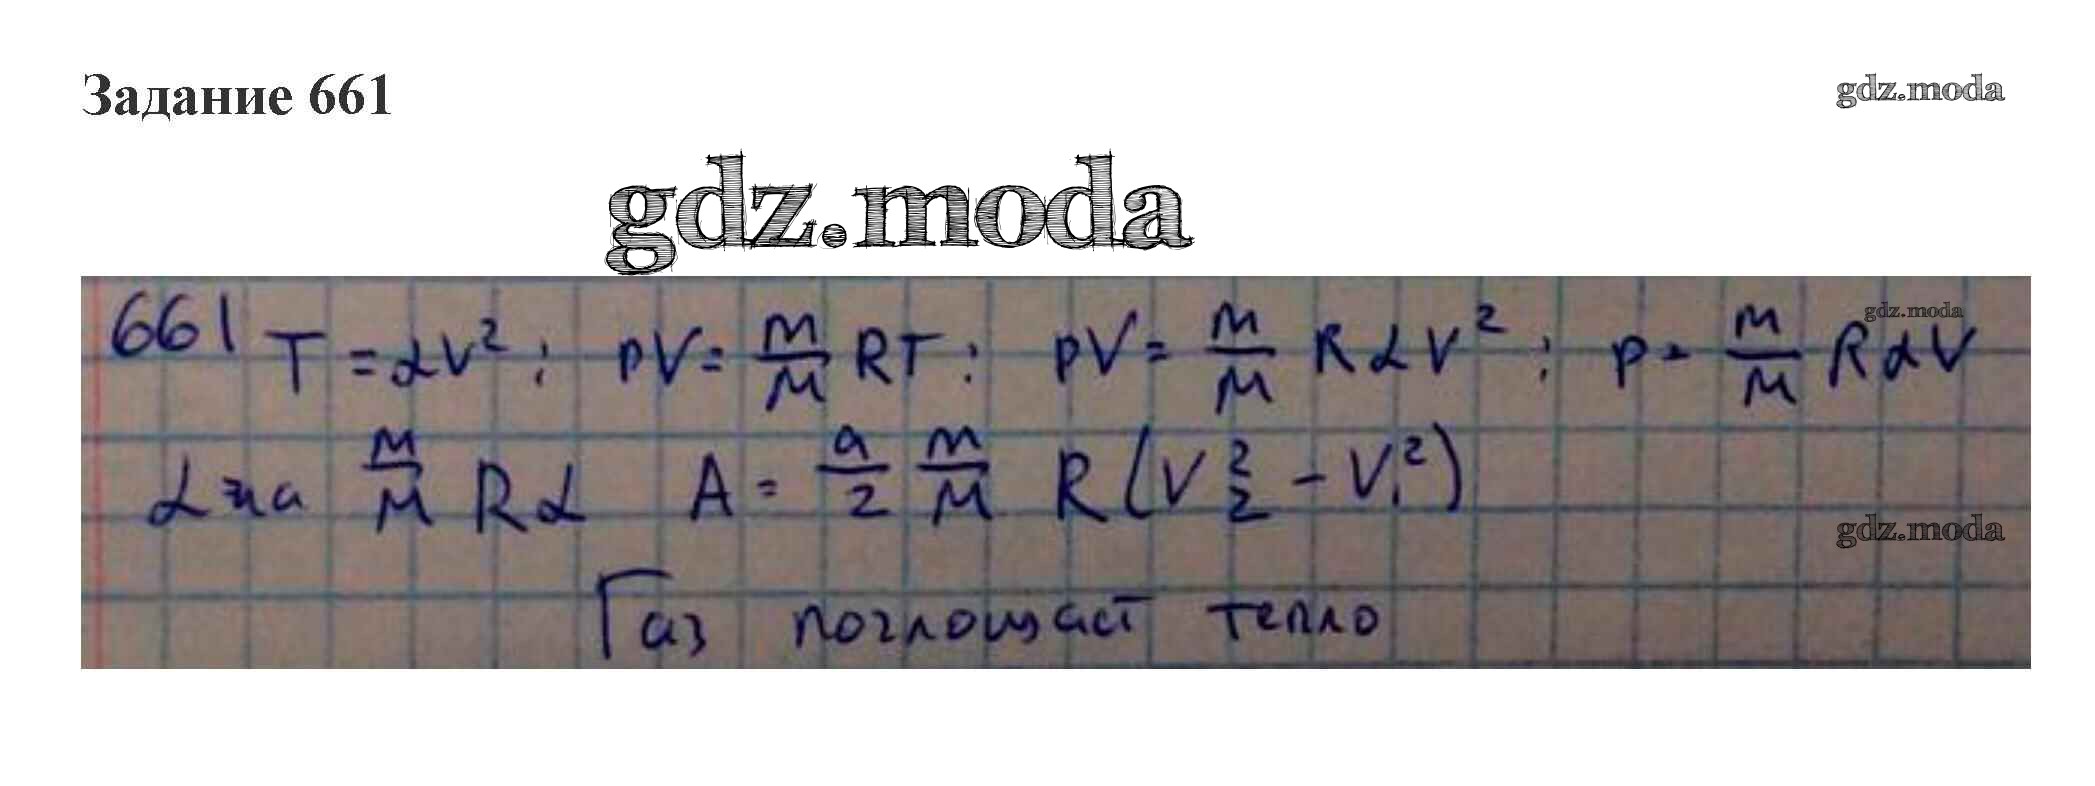 Задание 661
gdz.moda
gdz.moda
661 T = αV²; pV = m/M RT; pV = m/M RαV²; p = m/M RαV
gdz.moda
α на m/M Rα A = a/2 m/M R(V₂² - V₁²)
gdz.moda
Газ поглощает тепло